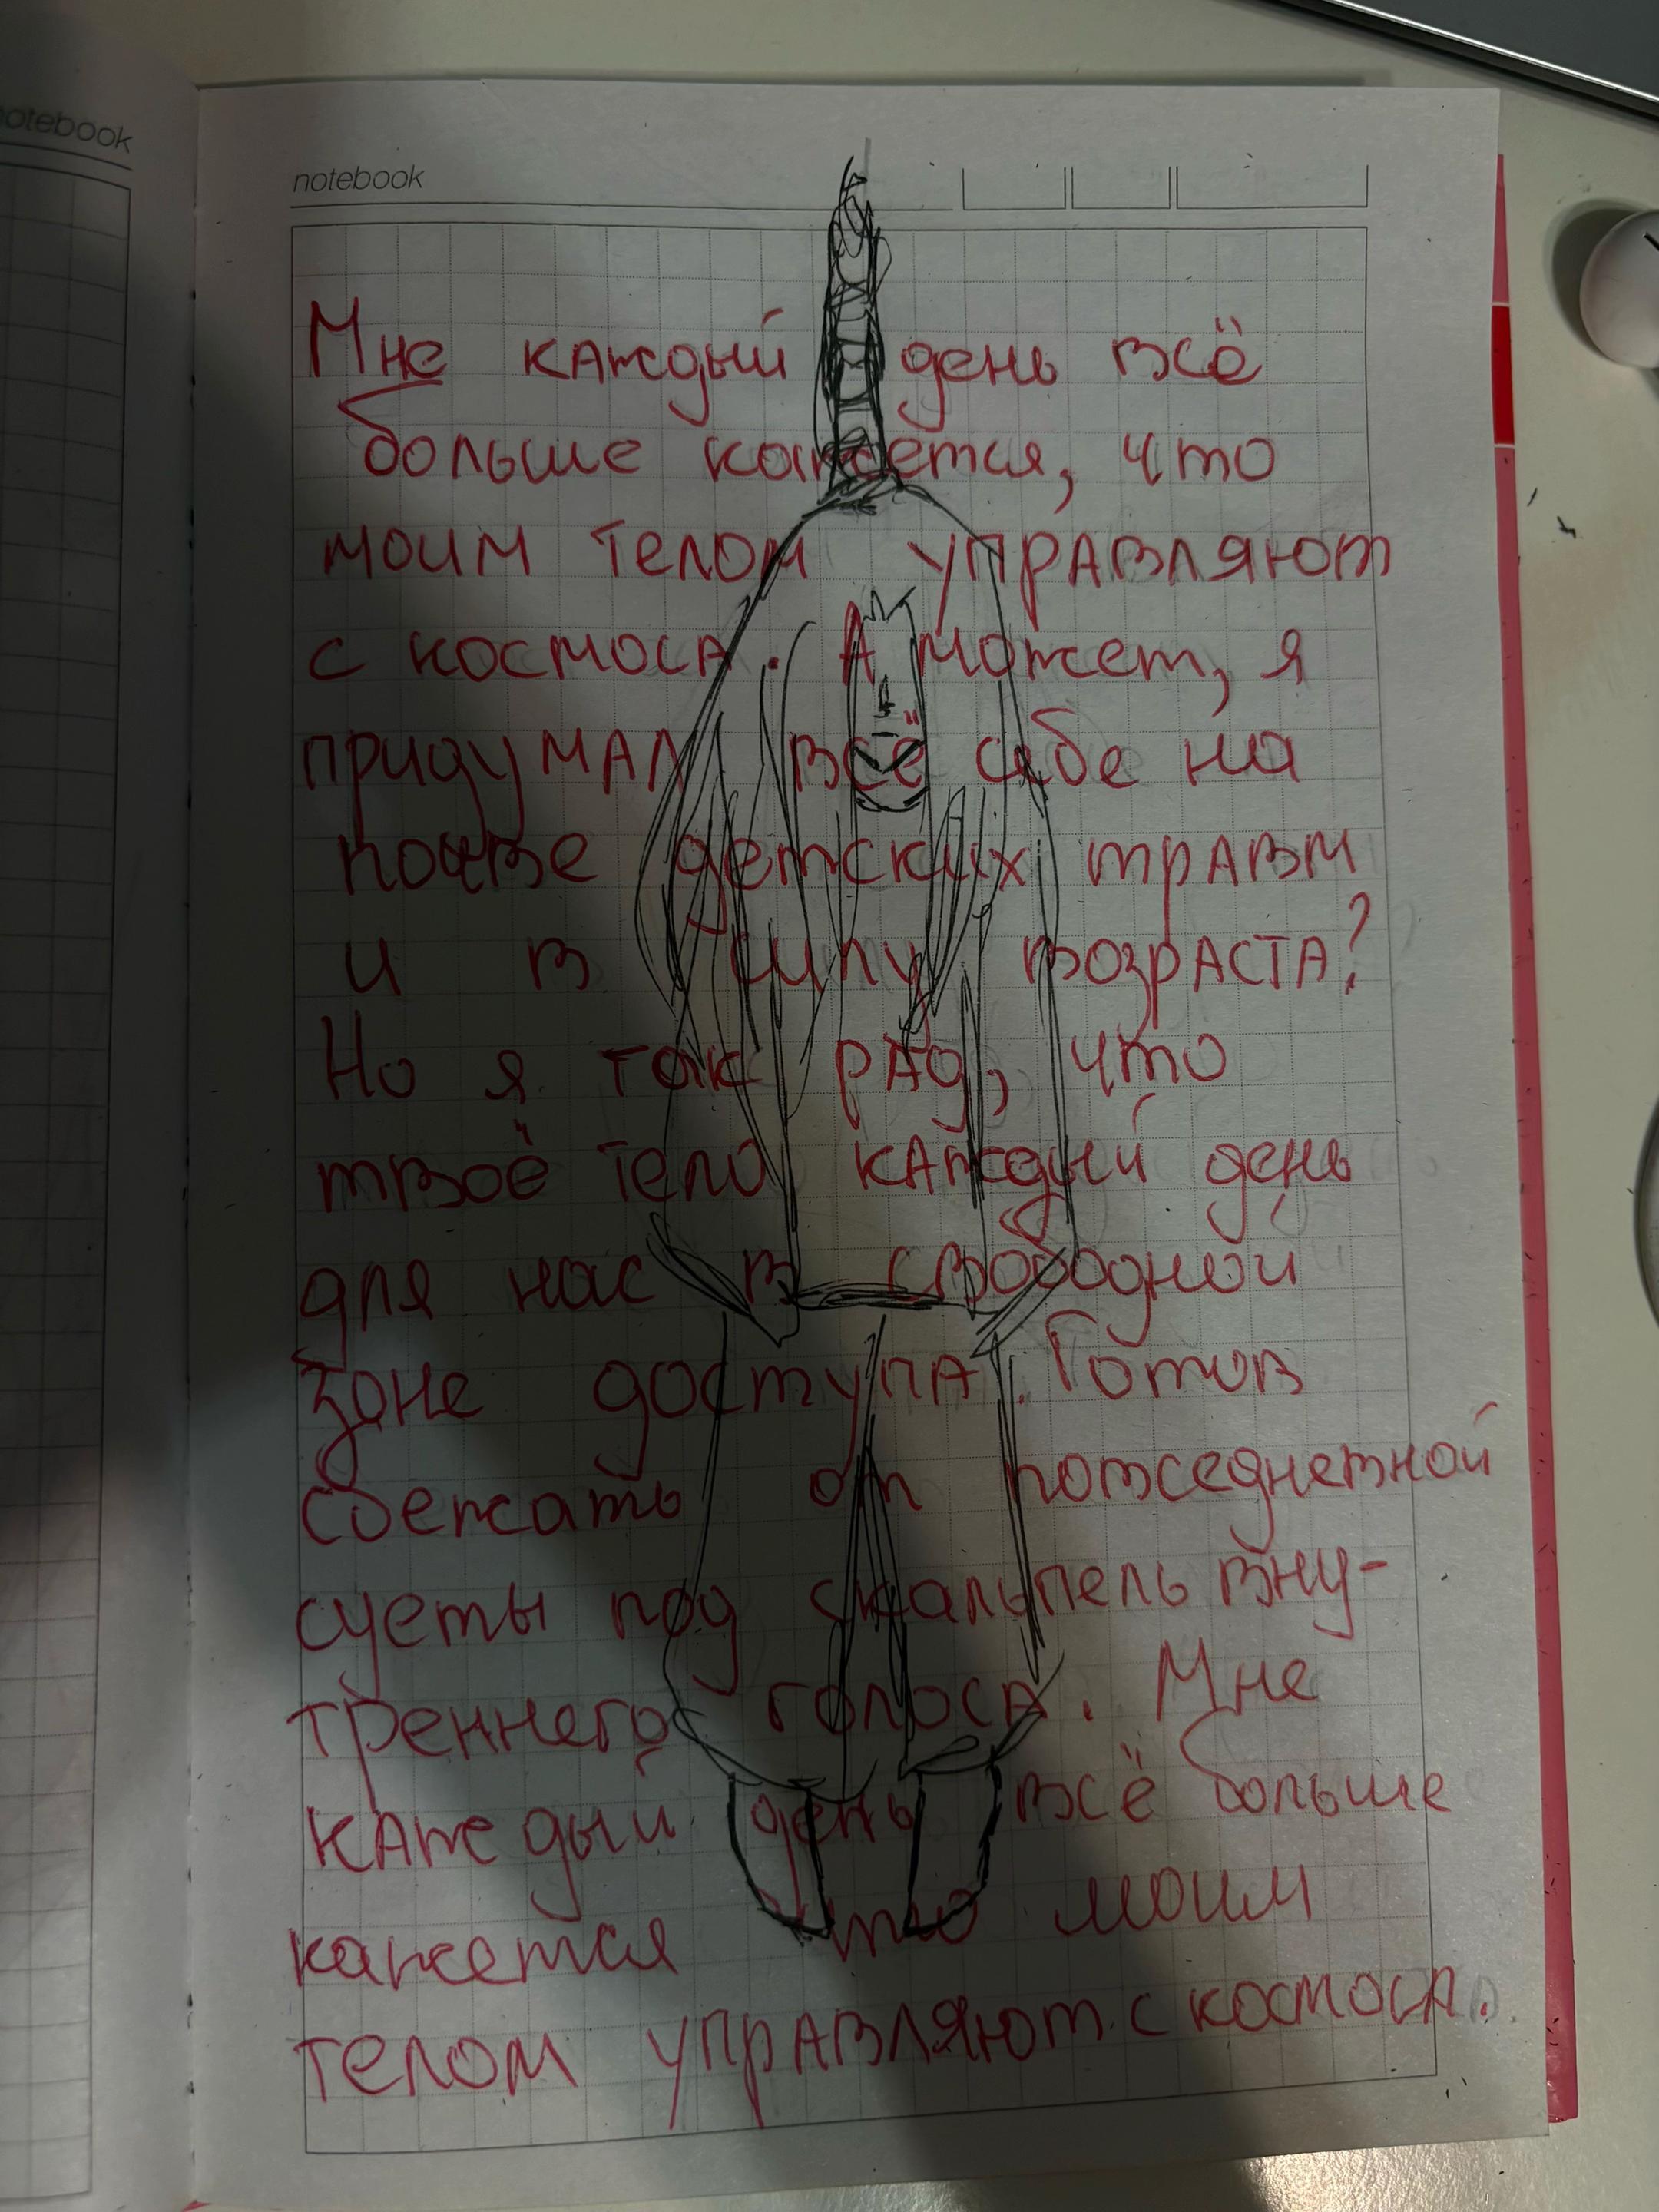 notebook
notebook
Мне каждый день всё
больше кажется, что
моим телом управляют
с космоса. А может, я
придумал всё себе на
почве детских травм
и в силу возраста?
Но я так рад, что
твоё тело каждый день
для нас в свободной
зоне доступа. Готов
сбежать от повседневной
суеты под скальпель вну-
треннего голоса. Мне
каждый день всё больше
кажется что моим
телом управляют с космоса.